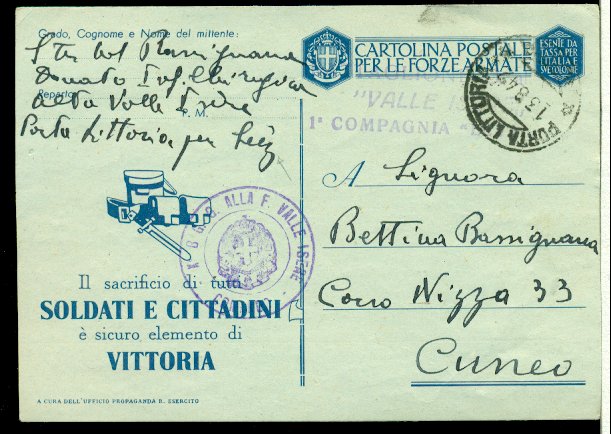 Grado, Cognome e Nome del mittente:
S. Ten. Col Bassignana
Donato
Reparto
Alta Valle Isère
P. M.
Porta Littoria per Seez
CARTOLINA POSTALE
PER LE FORZE ARMATE
ESENTE DA
TASSA PER
L'ITALIA
E SVE COLONIE
"VALLE
1ª COMPAGNIA
PORTA LITTORIA
13.8.42
G. ALLA F. VALLE ISERE
A Signora
Bettina Bassignana
Corso Nizza 33
Cuneo
Il sacrificio di tutti
SOLDATI E CITTADINI
è sicuro elemento di
VITTORIA
A CURA DELL'UFFICIO PROPAGANDA R. ESERCITO